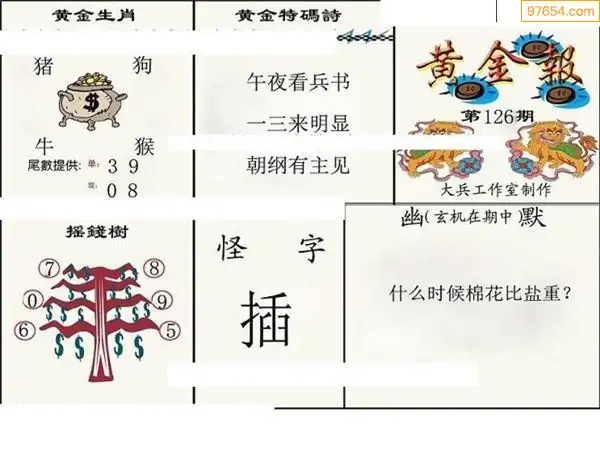 97654.com
黄金生肖
猪 狗
牛 猴
尾數提供: 单: 3 9
双: 0 8
黄金特碼詩
午夜看兵书
一三来明显
朝纲有主见
黄金報
第126期
大兵工作室制作
摇錢樹
7 8
0 9
6 5
怪 字
插
幽(玄机在期中)默
什么时候棉花比盐重？